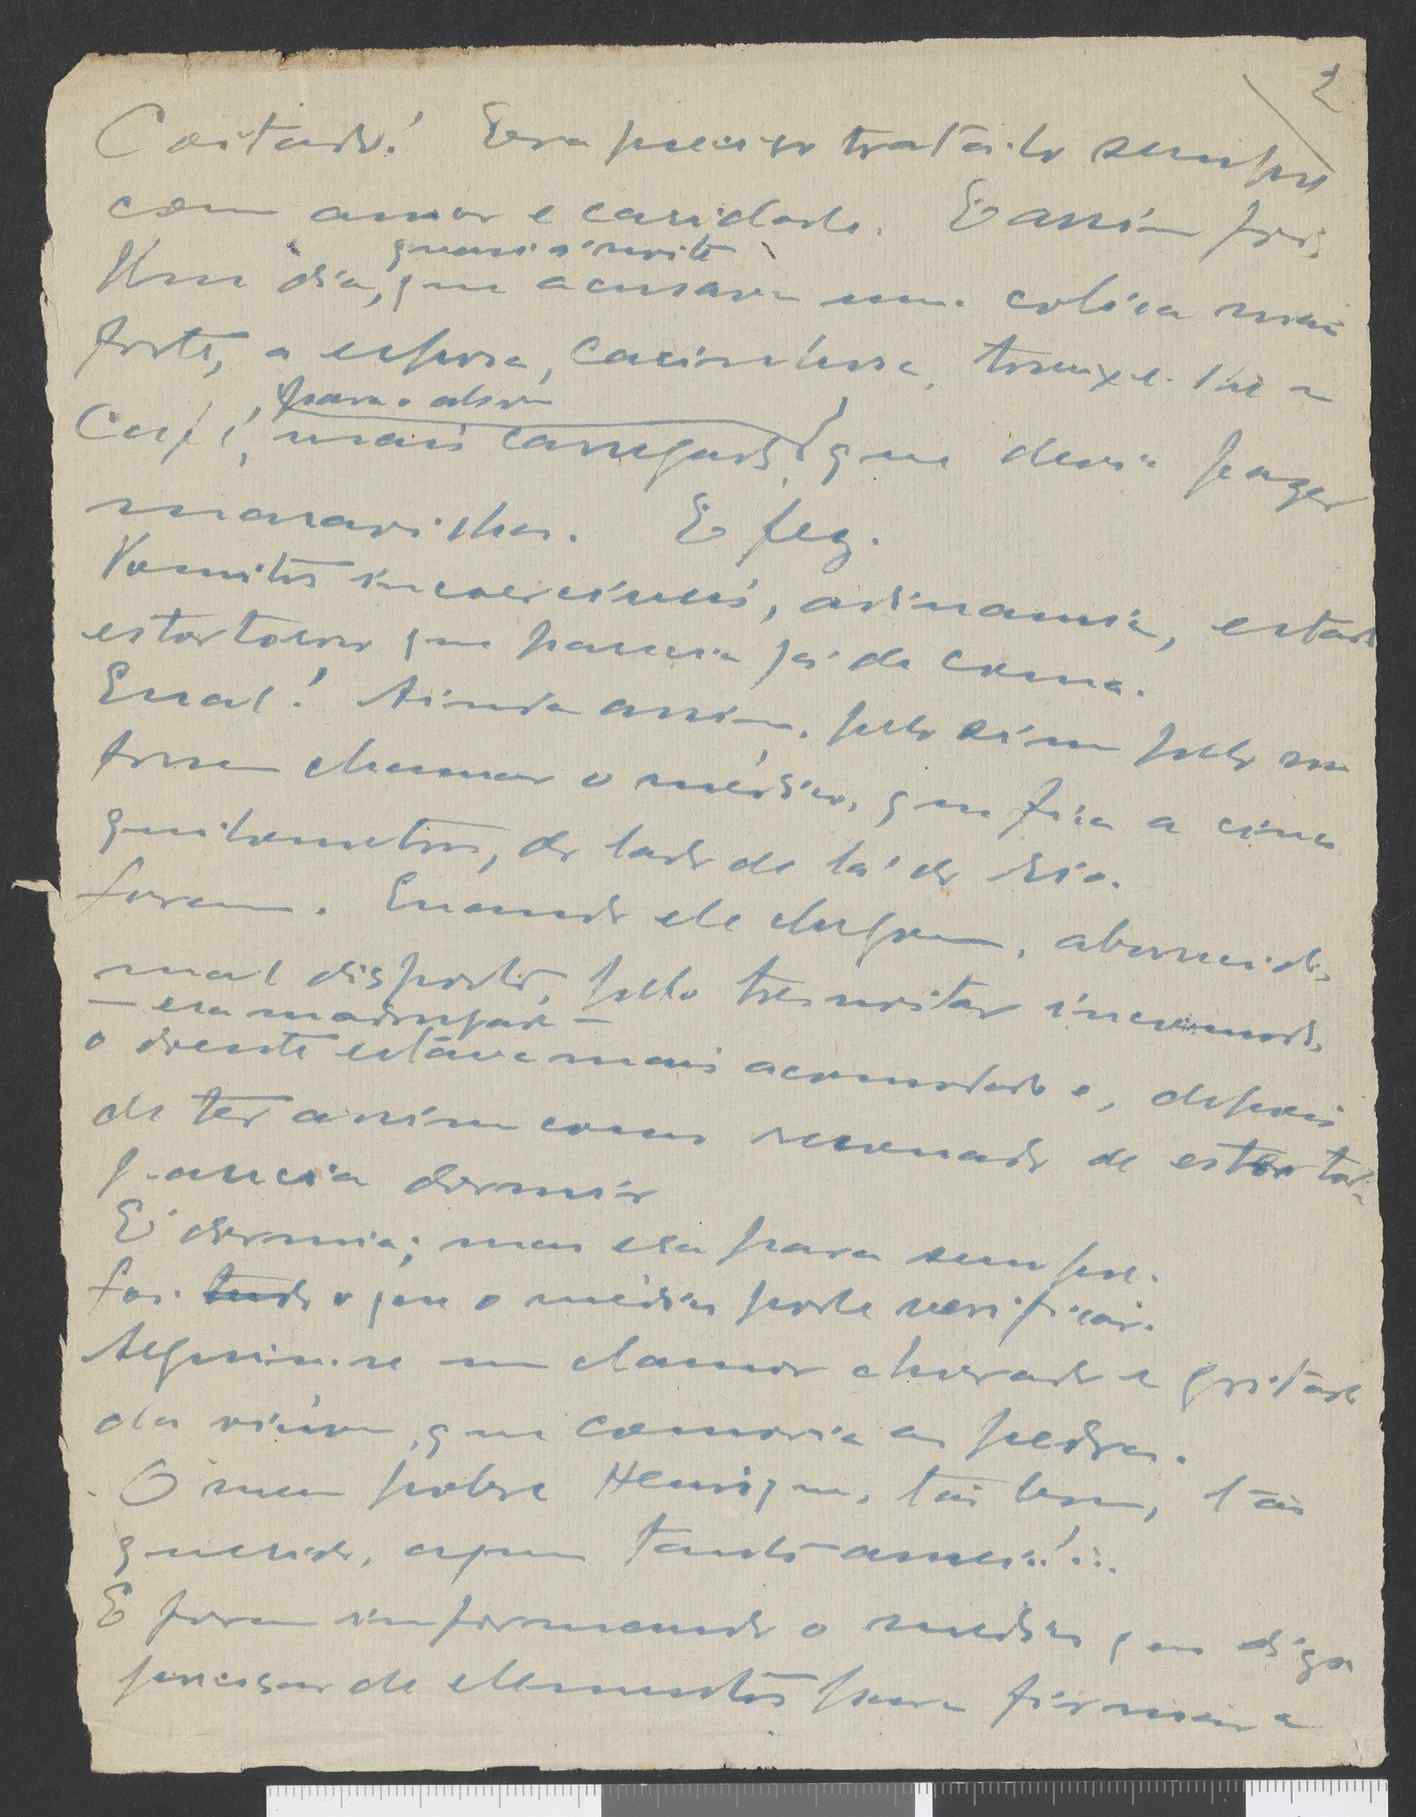 2
Coitado! Era preciso tratá-lo sempre
com amor e caridade. E assim foi.
quasi á noite
Um dia, que acusava uma colica mais
forte, a esposa, carinhosa, trouxe-lhe o
para o alivio
Café, mais carregado, que devia fazer
maravilhas. E fez.
Vomitos incoerciveis, adinamia, estado
estertoroso que parecia já de coma.
E mal! Ainda assim, pelo sim pelo não
foram chamar o médico, que fica a cinco
quilometros, do lado de lá do rio.
foram. Quando ele chegou, aborrecido,
mal disposto, pelo tresnoitar incomodo,
— era madrugada —
o doente estava mais acomodado e, depois
de ter assim como ressonado de estertor,
parecia dormir
E dormia; mas era para sempre.
foi tudo o que o médico pode verificar.
Seguiu-se um clamor chorado e gritado
da viúva, que comovia as pedras.
O meu pobre Henrique, tão bom, tão
querido, a quem tanto amei!...
E foram informando o medico que dizia
precisar de elementos para firmar a